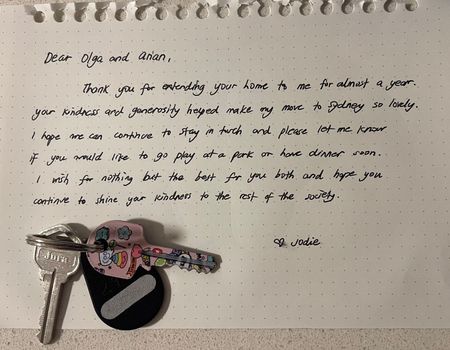 Dear Olga and Arian,
Thank you for extending your home to me for almost a year.
your kindness and generosity helped make my move to Sydney so lovely.
I hope we can continue to stay in touch and please let me know
if you would like to go play at a park or have dinner soon.
I wish for nothing but the best for you both and hope you
continue to shine your kindness to the rest of the society.
♡ Jodie